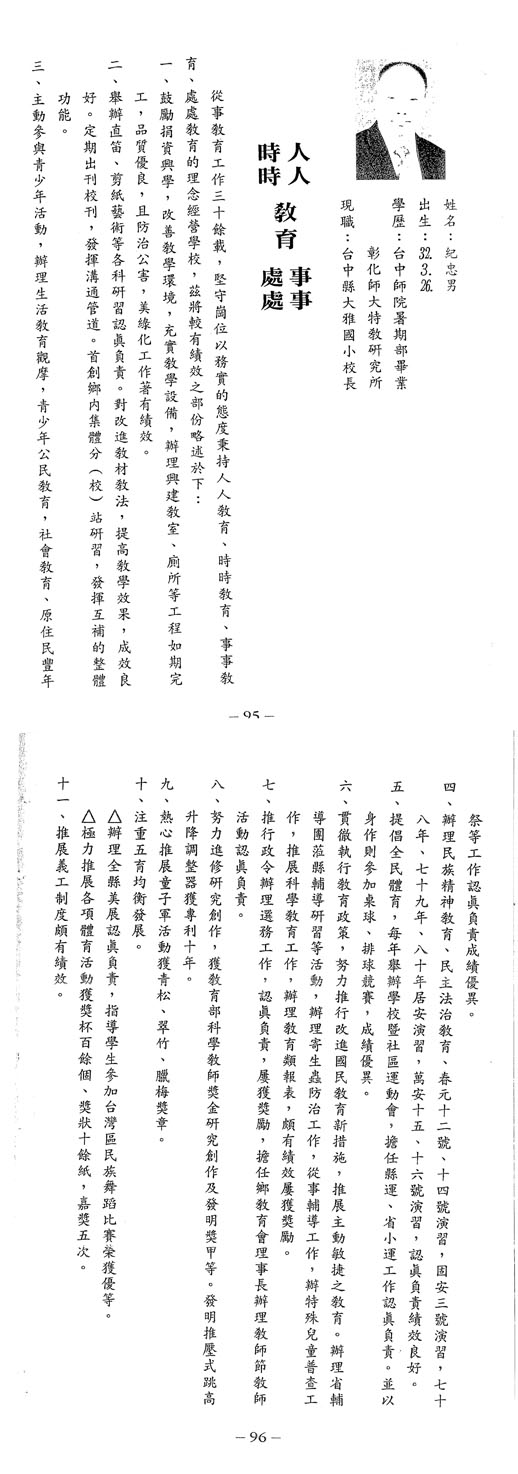 姓名：紀忠男
出生：32.3.26.
學歷：台中師院暑期部畢業
彰化師大特教研究所
現職：台中縣大雅國小校長
人人 事事
教育
時時 處處
從事教育工作三十餘載，堅守崗位以務實的態度秉持人人教育、時時教育、事事教
育、處處教育的理念經營學校，茲將較有績效之部份略述於下：
一、鼓勵捐資興學，改善教學環境，充實教學設備，辦理興建教室、廁所等工程如期完
工，品質優良，且防治公害，美綠化工作著有績效。
二、舉辦直笛、剪紙藝術等各科研習認真負責。對改進教材教法，提高教學效果，成效良
好。定期出刊校刊，發揮溝通管道。首創鄉內集體分（校）站研習，發揮互補的整體
功能。
三、主動參與青少年活動，辦理生活教育觀摩，青少年公民教育，社會教育、原住民豐年
－95－
祭等工作認真負責成績優異。
四、辦理民族精神教育、民主法治教育、春元十二號、十四號演習，固安三號演習，七十
八年、七十九年、八十年居安演習，萬安十五、十六號演習，認眞負責績效良好。
五、提倡全民體育，每年舉辦學校暨社區運動會，擔任縣運、省小運工作認眞負責。並以
身作則參加桌球、排球競賽，成績優異。
六、貫徹執行教育政策，努力推行改進國民教育新措施，推展主動敏捷之教育。辦理省輔
導團蒞縣輔導研習等活動，辦理寄生蟲防治工作，從事輔導工作，辦特殊兒童普查工
作，推展科學教育工作，辦理教育類報表，頗有績效屢獲獎勵。
七、推行政令辦理選務工作，認眞負責，屢獲獎勵，擔任鄉教育會理事長辦理教師節教師
活動認眞負責。
八、努力進修研究創作，獲教育部科學教師獎金研究創作及發明獎甲等。發明推壓式跳高
升降調整器獲專利十年。
九、熱心推展童子軍活動獲青松、翠竹、臘梅獎章。
十、注重五育均衡發展。
△辦理全縣美展認眞負責，指導學生參加台灣區民族舞蹈比賽榮獲優等。
△極力推展各項體育活動獲獎杯百餘個、獎狀十餘紙，嘉獎五次。
十一、推展義工制度頗有績效。
－96－